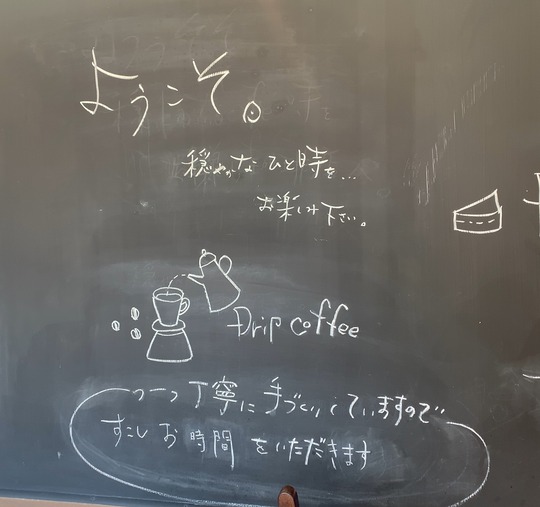 ようこそ。
穏やかなひと時を...
お楽しみ下さい。
Drip coffee
一つ一つ丁寧に手づくりしていますので
すこしお時間をいただきます